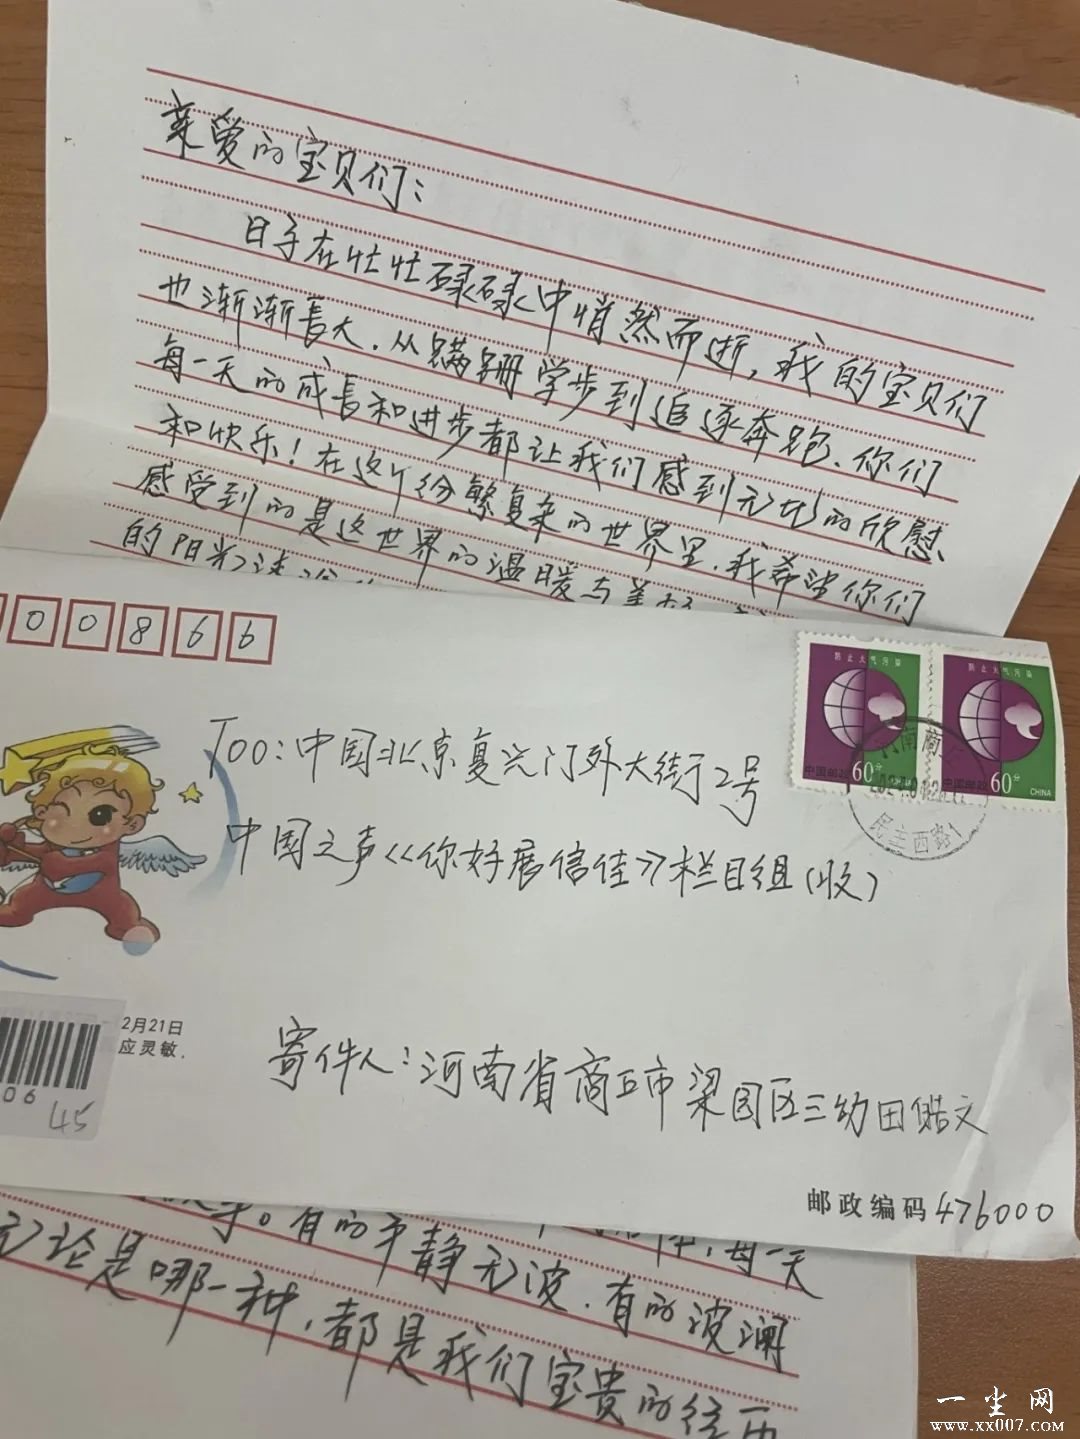 亲爱的宝贝们：
日子在忙忙碌碌中悄然而逝，我的宝贝们
也渐渐长大．从蹒跚学步到追逐奔跑、你们
每一天的成长和进步都让我们感到无比的欣慰
和快乐！在这个纷繁复杂的世界里．我希望你们
感受到的是这世界的温暖与美好
的阳光
00866
防止大气污染
防止大气污染
中国邮政 60分 CHINA
中国邮政 60分 CHINA
民主西路1
Too：中国北京复兴门外大街2号
中国之声《你好展信佳》栏目组（收）
2月21日
应灵敏．
06
45
寄件人：河南省商丘市梁园区三幼田皓文
邮政编码 476000
。有的平静无波．有的波澜
每一天
无论是哪一种，都是我们宝贵的经历
一尘网
www.xx007.com